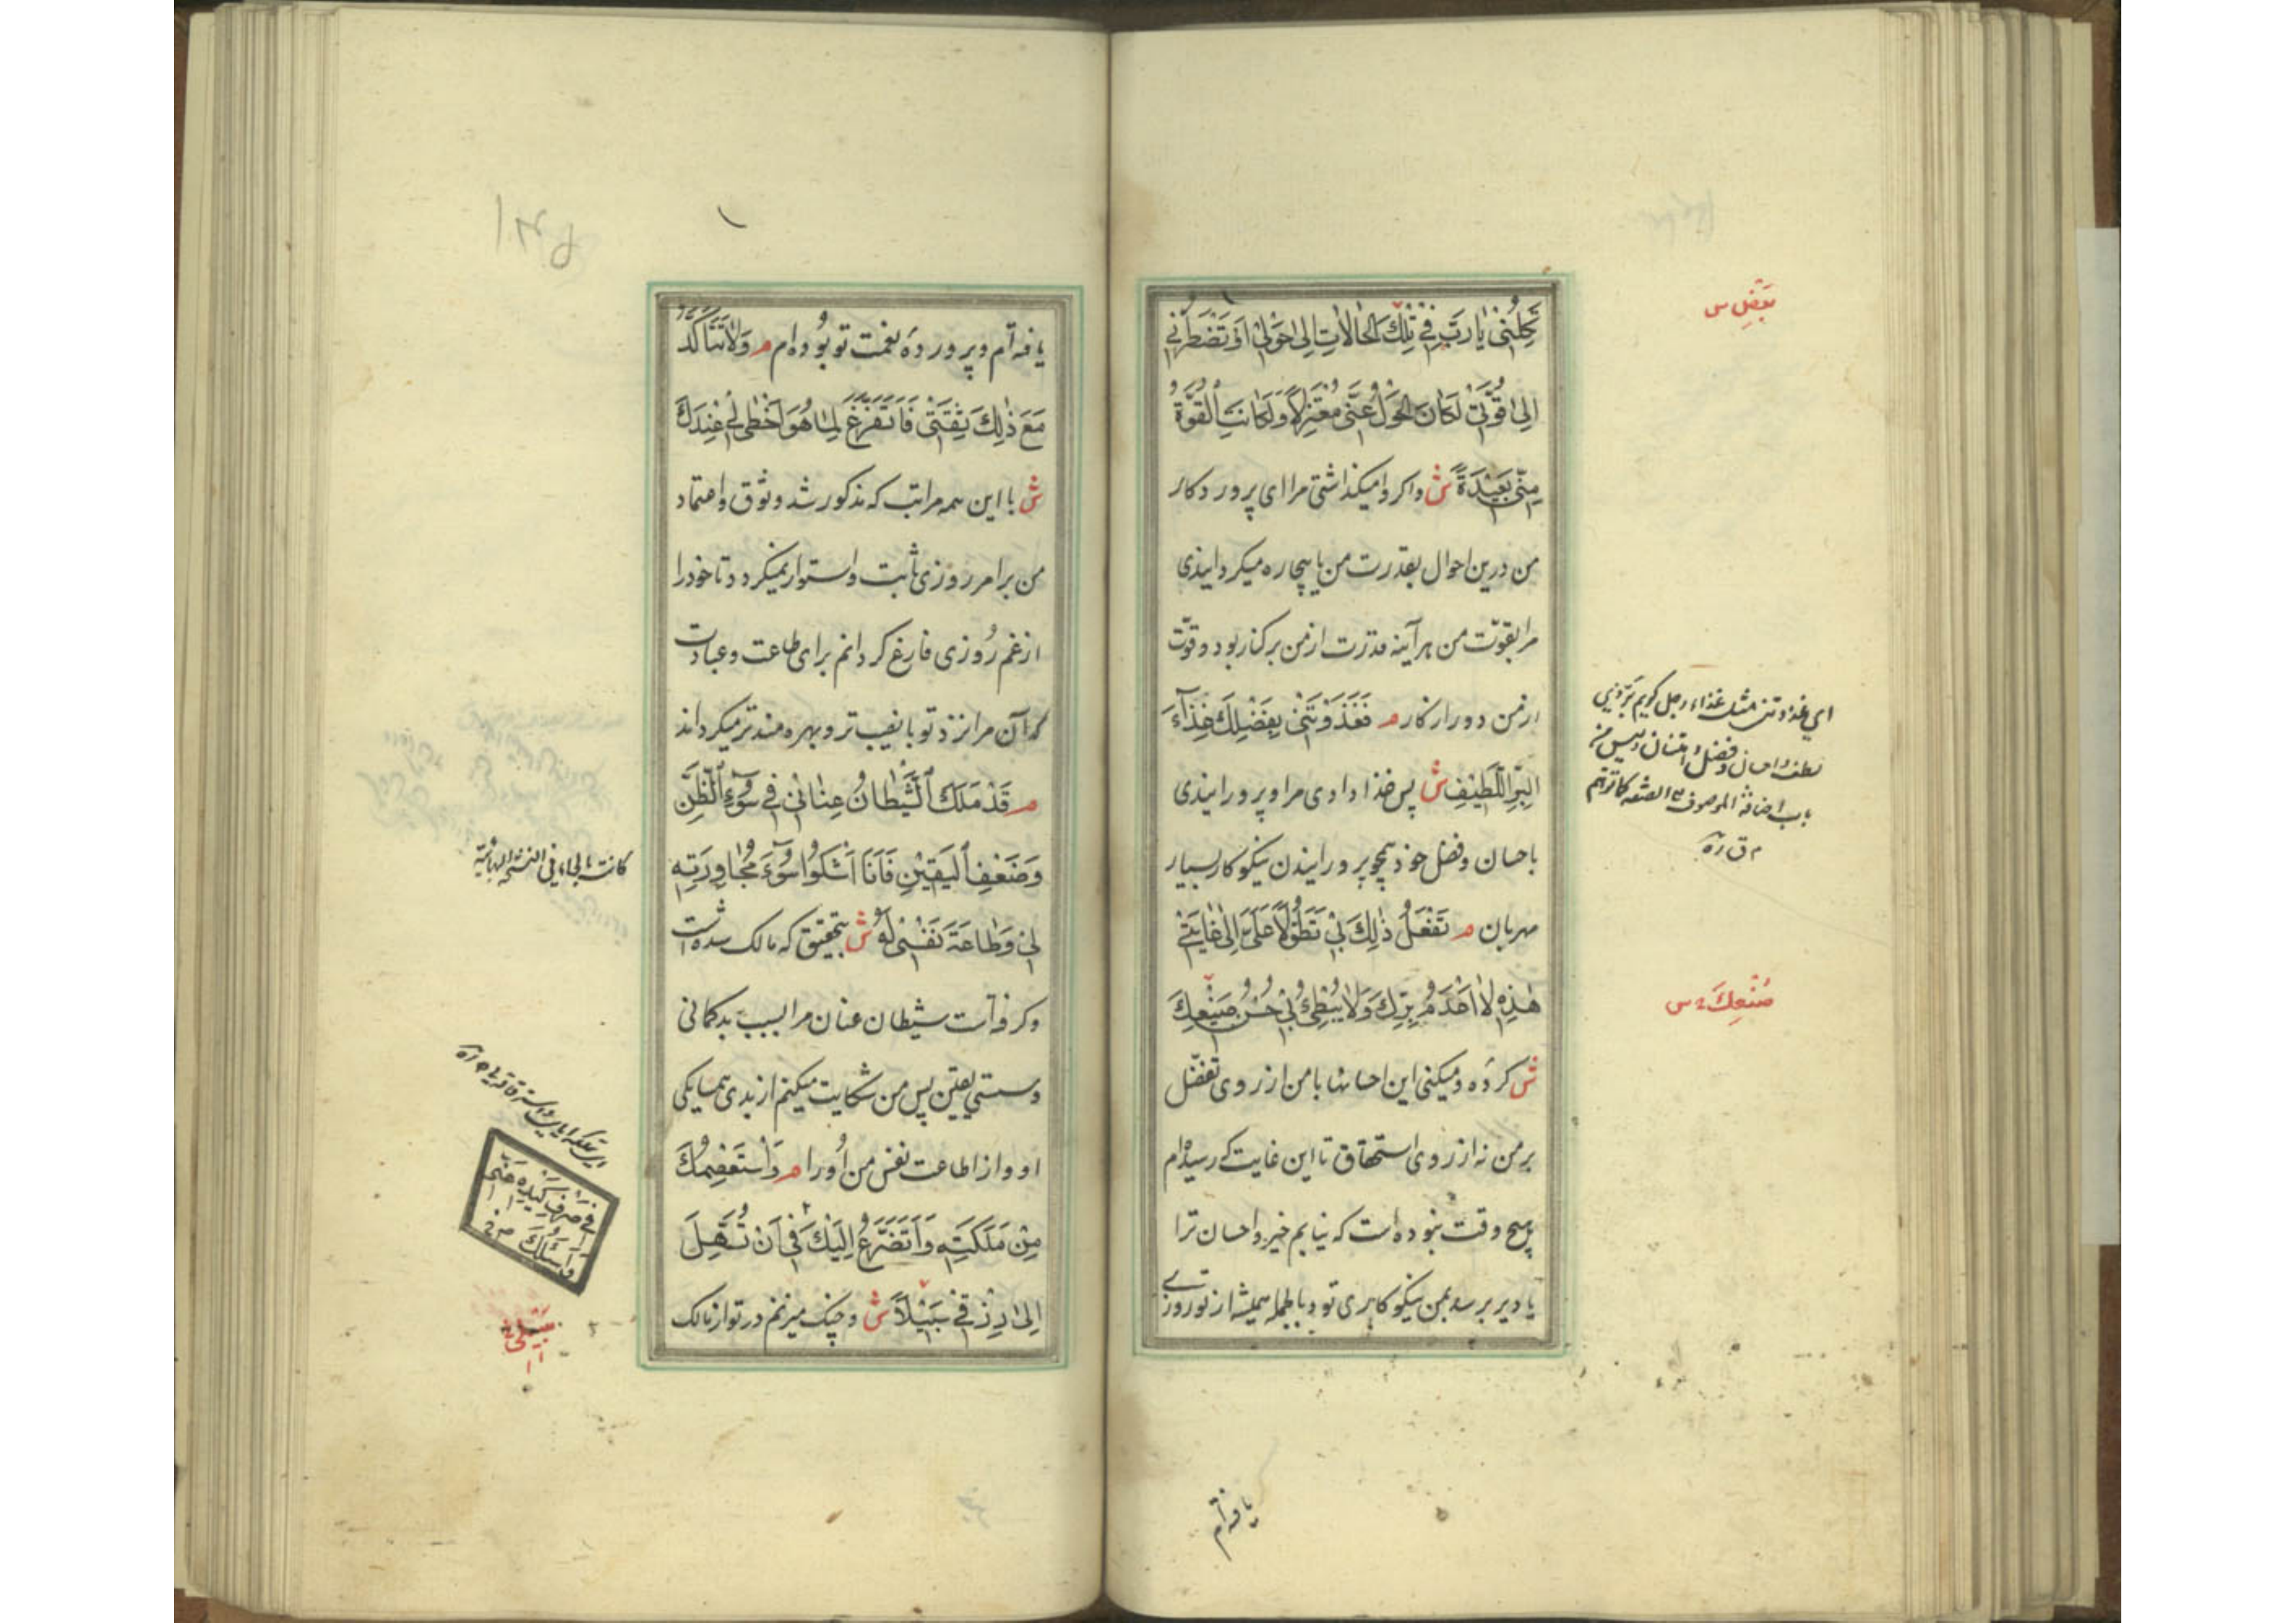 تَكِلْنِی یٰا رَبِّ فِی تِلْكَ الْحٰالاٰتِ اِلیٰ حَوْلِی اَوْ تَضْطَرُّنِی
اِلیٰ قُوَّتِی لَكٰانَ الْحَوْلُ عَنِّی مُعْتَزِلاً وَلَكٰانَتِ الْقُوَّةُ
مِنِّی بَعِیْدَةً ش واکر وامیکذاشتی مرا ای پروردکار
من درین احوال بقدرت من یا بیچاره میکردانیدی
مرا بقوّت من هرآینه قدرت از من برکنار بود و قوّت
از من دور از کار م فَغَذَوْتَنِی بِفَضْلِكَ غِذٰآءَ
الْبَرِّ اللَّطِیْفِ ش پس غذا دادی مرا و پرورانیدی
باحسان و فضل خود همچو پرورانیدن نیکوکار بسیار
مهربان م تَفْعَلُ ذٰلِكَ بِی تَطَوُّلاً عَلَیَّ اِلیٰ غٰایَتِی
هٰذِهِ لاٰ اَعْدَمُ بِرَّكَ وَلاٰ یُبْطِئُ بِی حُسْنُ صَنِیْعِكَ
ش کرده و میکنی این احسانها با من از روی تفضّل
بر من نه از روی استحقاق تا این غایت که رسیده‌ام
هیچ وقت نبوده است که نیابم خیر و احسان ترا
یا دیر برسد بمن نیکوکاری تو و بالجمله همیشه از تو روزی
بفضل س
اي غذوتني مثل غذاء رجل كريم
لطف واحسان وفضل وامتنان وليس من
باب اضافة الموصوف الى الصفة كما توهم
م ق ره
صُنْعِكَ س
یافته‌ام
یافته‌ام و پرورده نعمت تو بوده‌ام م وَلاٰ تَتَأَكَّدُ
مَعَ ذٰلِكَ ثِقَتِی فَاَتَفَرَّغَ لِمٰا هُوَ اَحْظیٰ لِی عِنْدَكَ
ش با این همه مراتب که مذکور شد وثوق و اعتماد
من بر امر روزی ثابت و استوار نمیکردد تا خود را
از غم روزی فارغ کردانم برای طاعت و عبادت
که آن مرا نزد تو با نصیب‌تر و بهره‌مندتر میکرداند
م قَدْ مَلَكَ الشَّیْطٰانُ عِنٰانِی فِی سُوٓءِ الظَّنِّ
وَضَعْفِ الْیَقِیْنِ فَاَنَا اَشْكُوا سُوٓءَ مُجٰاوَرَتِهِ
لِی وَطٰاعَةَ نَفْسِی لَهُ ش بتحقیق که مالک شده است
و کرفته است شیطان عنان مرا بسبب بدکمانی
و سستی یقین پس من شکایت میکنم از بدی همسایکی
او و از اطاعت نفس من او را م وَاَسْتَعْصِمُكَ
مِنْ مَلَكَتِهِ وَاَتَضَرَّعُ اِلَیْكَ فِی اَنْ تُسَهِّلَ
اِلیٰ رِزْقِی سَبِیْلاً ش و چنک میزنم در تو از مالک
كانت بالجاء في النسخة البهائية
فِی صَرْفِ كَیْدِهِ عَنِّی
وَاَسْئَلُكَ